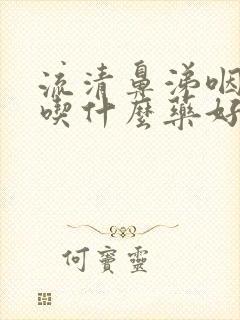 流清鼻涕咽
喫什麼藥好
何寶靈